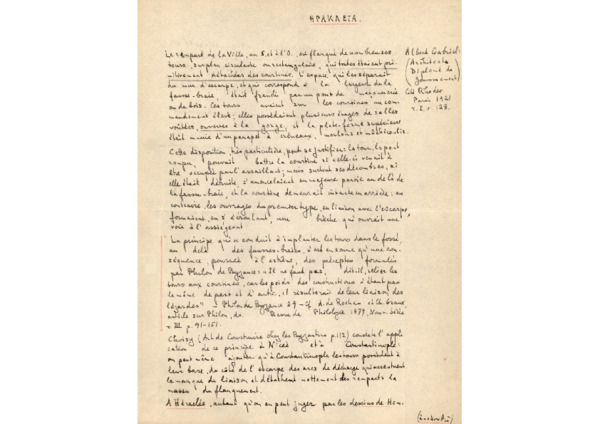 ΗΡΑΚΛΕΙΑ.
Le rempart de la Ville, au S. et à l'O. est flanqué de nombreuses
tours, sur plan circulaire ou rectangulaire, qui toutes étaient pri-
mitivement détachées des courtines. L'espace qui les séparait
du mur d'escarpe, et qui correspond à la largeur de la
fausse-braie, était franchi par un pont de maçonnerie
ou de bois. Ces tours avaient sur les courtines un com-
mandement élevé; elles possédaient plusieurs étages de salles
voûtées, ouvertes à la gorge, et la plate-forme supérieure
était munie d'un parapet à créneaux, merlons et
Cette disposition très particulière, peut se justifier: la tour, le pont
rompu, pouvait battre la courtine si celle-ci venait à
être occupée par l'assaillant; mais surtout ses décombres, si
elle était détruite, s'amoncelaient en majeure partie au delà de
la fausse-braie, et la courtine demeurait intacte en arrière; au
contraire, les ouvrages du premier type, en liaison avec l'escarpe,
formaient, en s'écroulant, une brèche qui ouvrait une
voie à l'assiégeant
Le principe qui a conduit à implanter les tours dans le fossé,
au delà des fausses-braies, n'est en somme qu'une con-
séquence, poussée à l'extrême, des préceptes formulés
par Philon de Byzance: «Il ne faut pas, dit-il, relier les
tours aux courtines, car les poids des constructions n'étant pas
le même de part et d'autre, il résulterait de leur liaison des
lézardes» - Philon de Byzance cf. A. de Rochas et Ch. Graux
article sur Philon, ds. Revue de Philologie 1879, Nouv. série
t. III p. 91-151.
Choisy (Art de Construire chez les Byzantins p. 112) constate l'appli
cation de ce principe à Nicée et à Constantinople:
on peut même ajouter qu'à Constantinople les tours possèdent à
leur base, du côté de l'escarpe des arcs de décharge qui accentuent
le manque de liaison et détachent nettement des remparts la
masse du flanquement.
A Héraclée, autant qu'on en peut juger par les dessins de Hom.
Albert Gabriel
(Architecte
Diplomé du
Gouvernement)
Cité Rhodes
Paris 1921
t. I, p. 128.